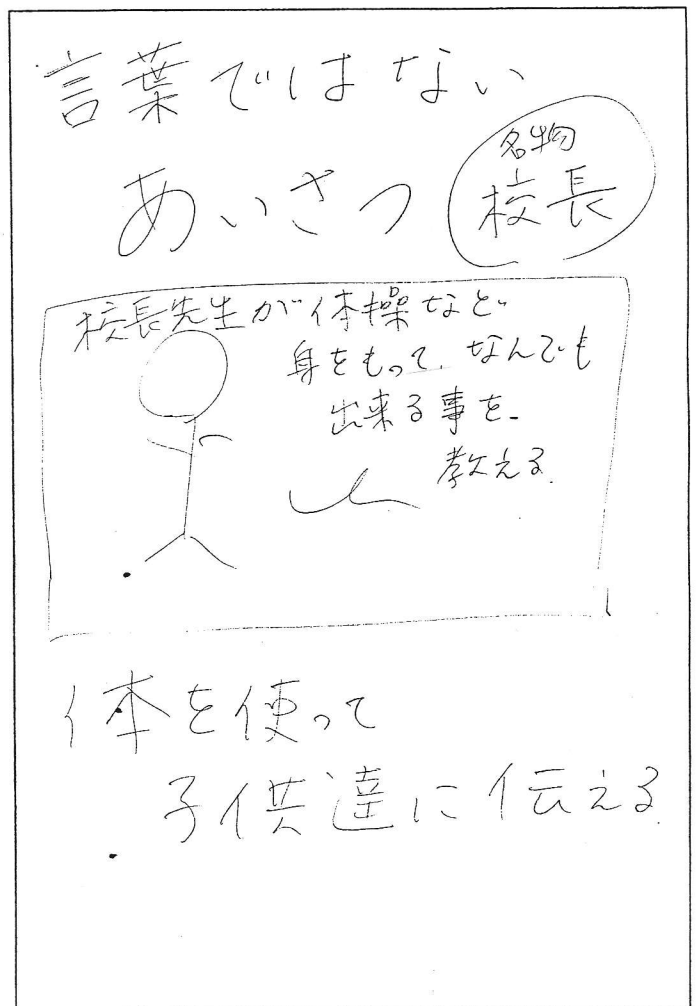 言葉ではない
あいさつ
名物
校長
校長先生が体操など
身をもって、なんでも
出来る事を、
教える。
体を使って
子供達に伝える